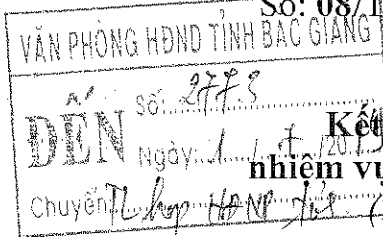 Số: 08/
VĂN PHÒNG HĐND TỈNH BẮC GIANG
Số: 2773
ĐẾN
Kết
Ngày: 1 / 7 /20
nhiệm vụ
Chuyển: TL họp HĐND